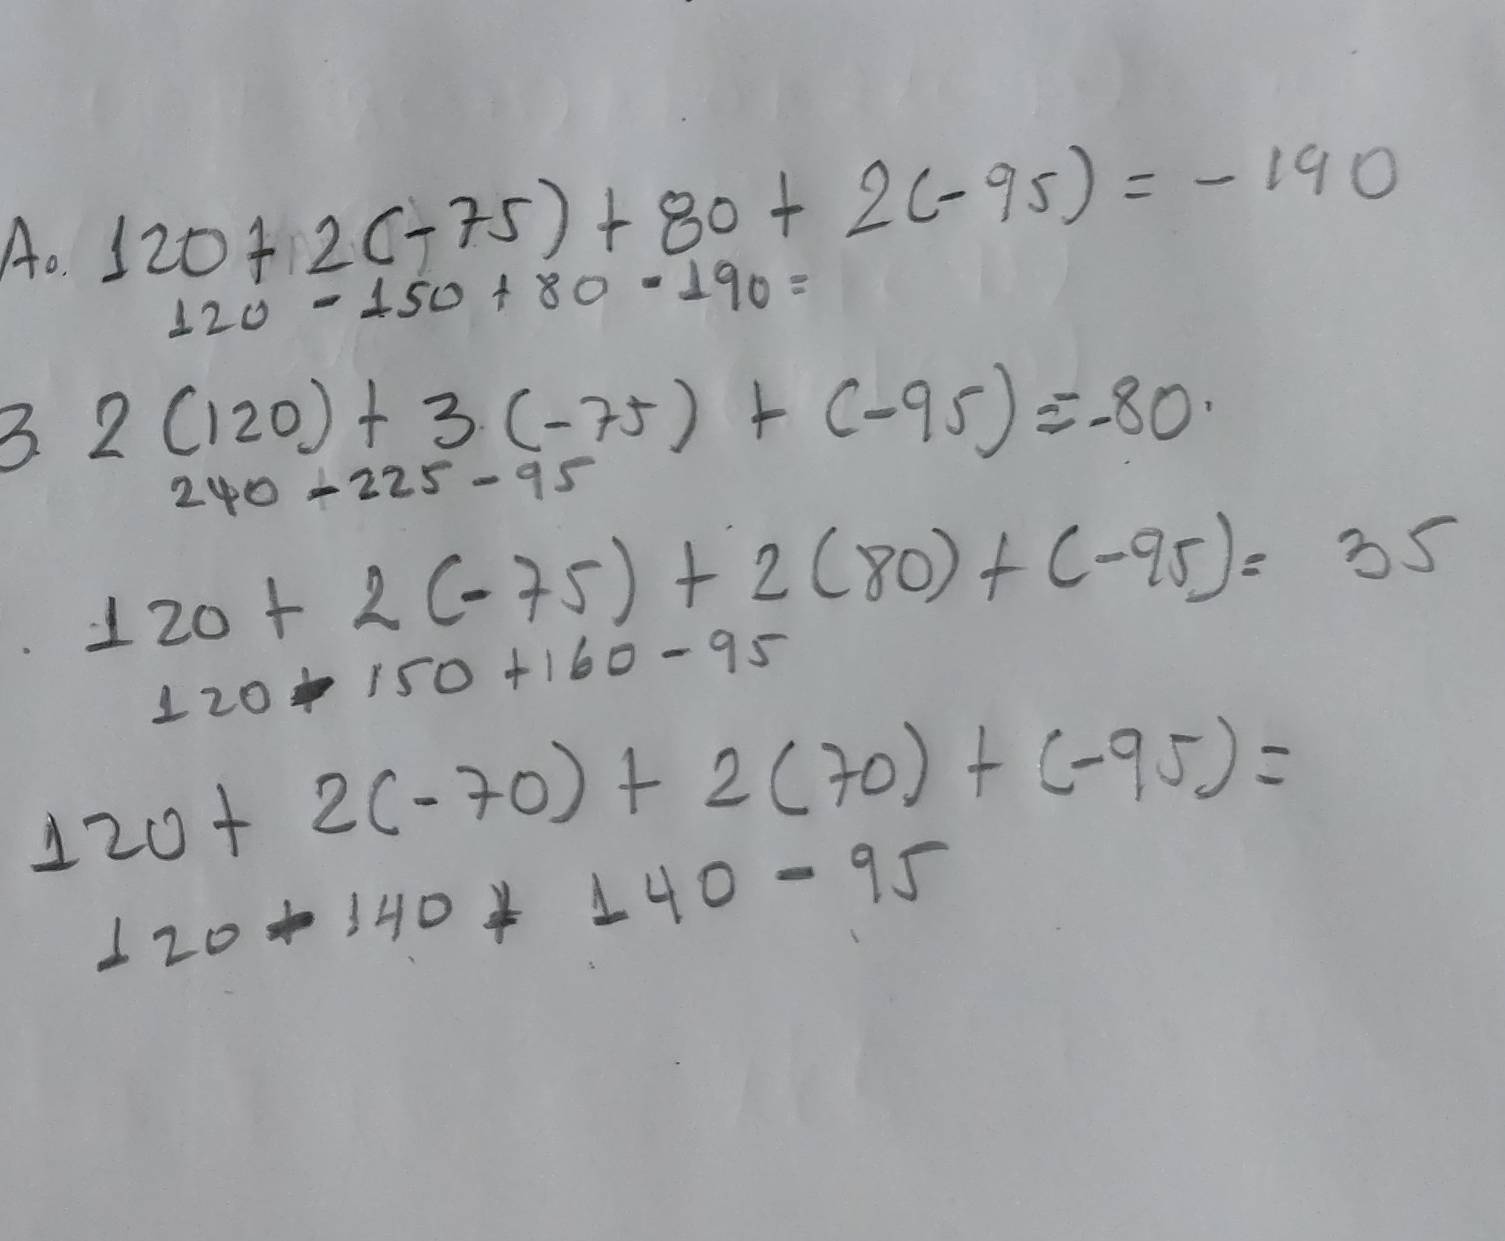 A. 120 + 2(-75) + 80 + 2(-95) = - 190
120 - 150 + 80 - 190 =
3 2 (120) + 3 (-75) + (-95) = -80.
240 - 225 - 95
. 120 + 2 (-75) + 2 (80) + (-95) = 35
120 - 150 + 160 - 95
120 + 2(-70) + 2(70) + (-95) =
120 - 140 + 140 - 95